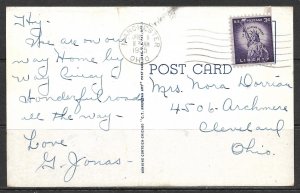 Hy-
We are on our
way Home by
Way Cincy
Wonderful roads
all the way-
Love
G. Jonas-
OHIO
POST CARD
3¢
LIBERTY
Mrs. Nora Dorrian
4506-Archmere
Cleveland
Ohio.